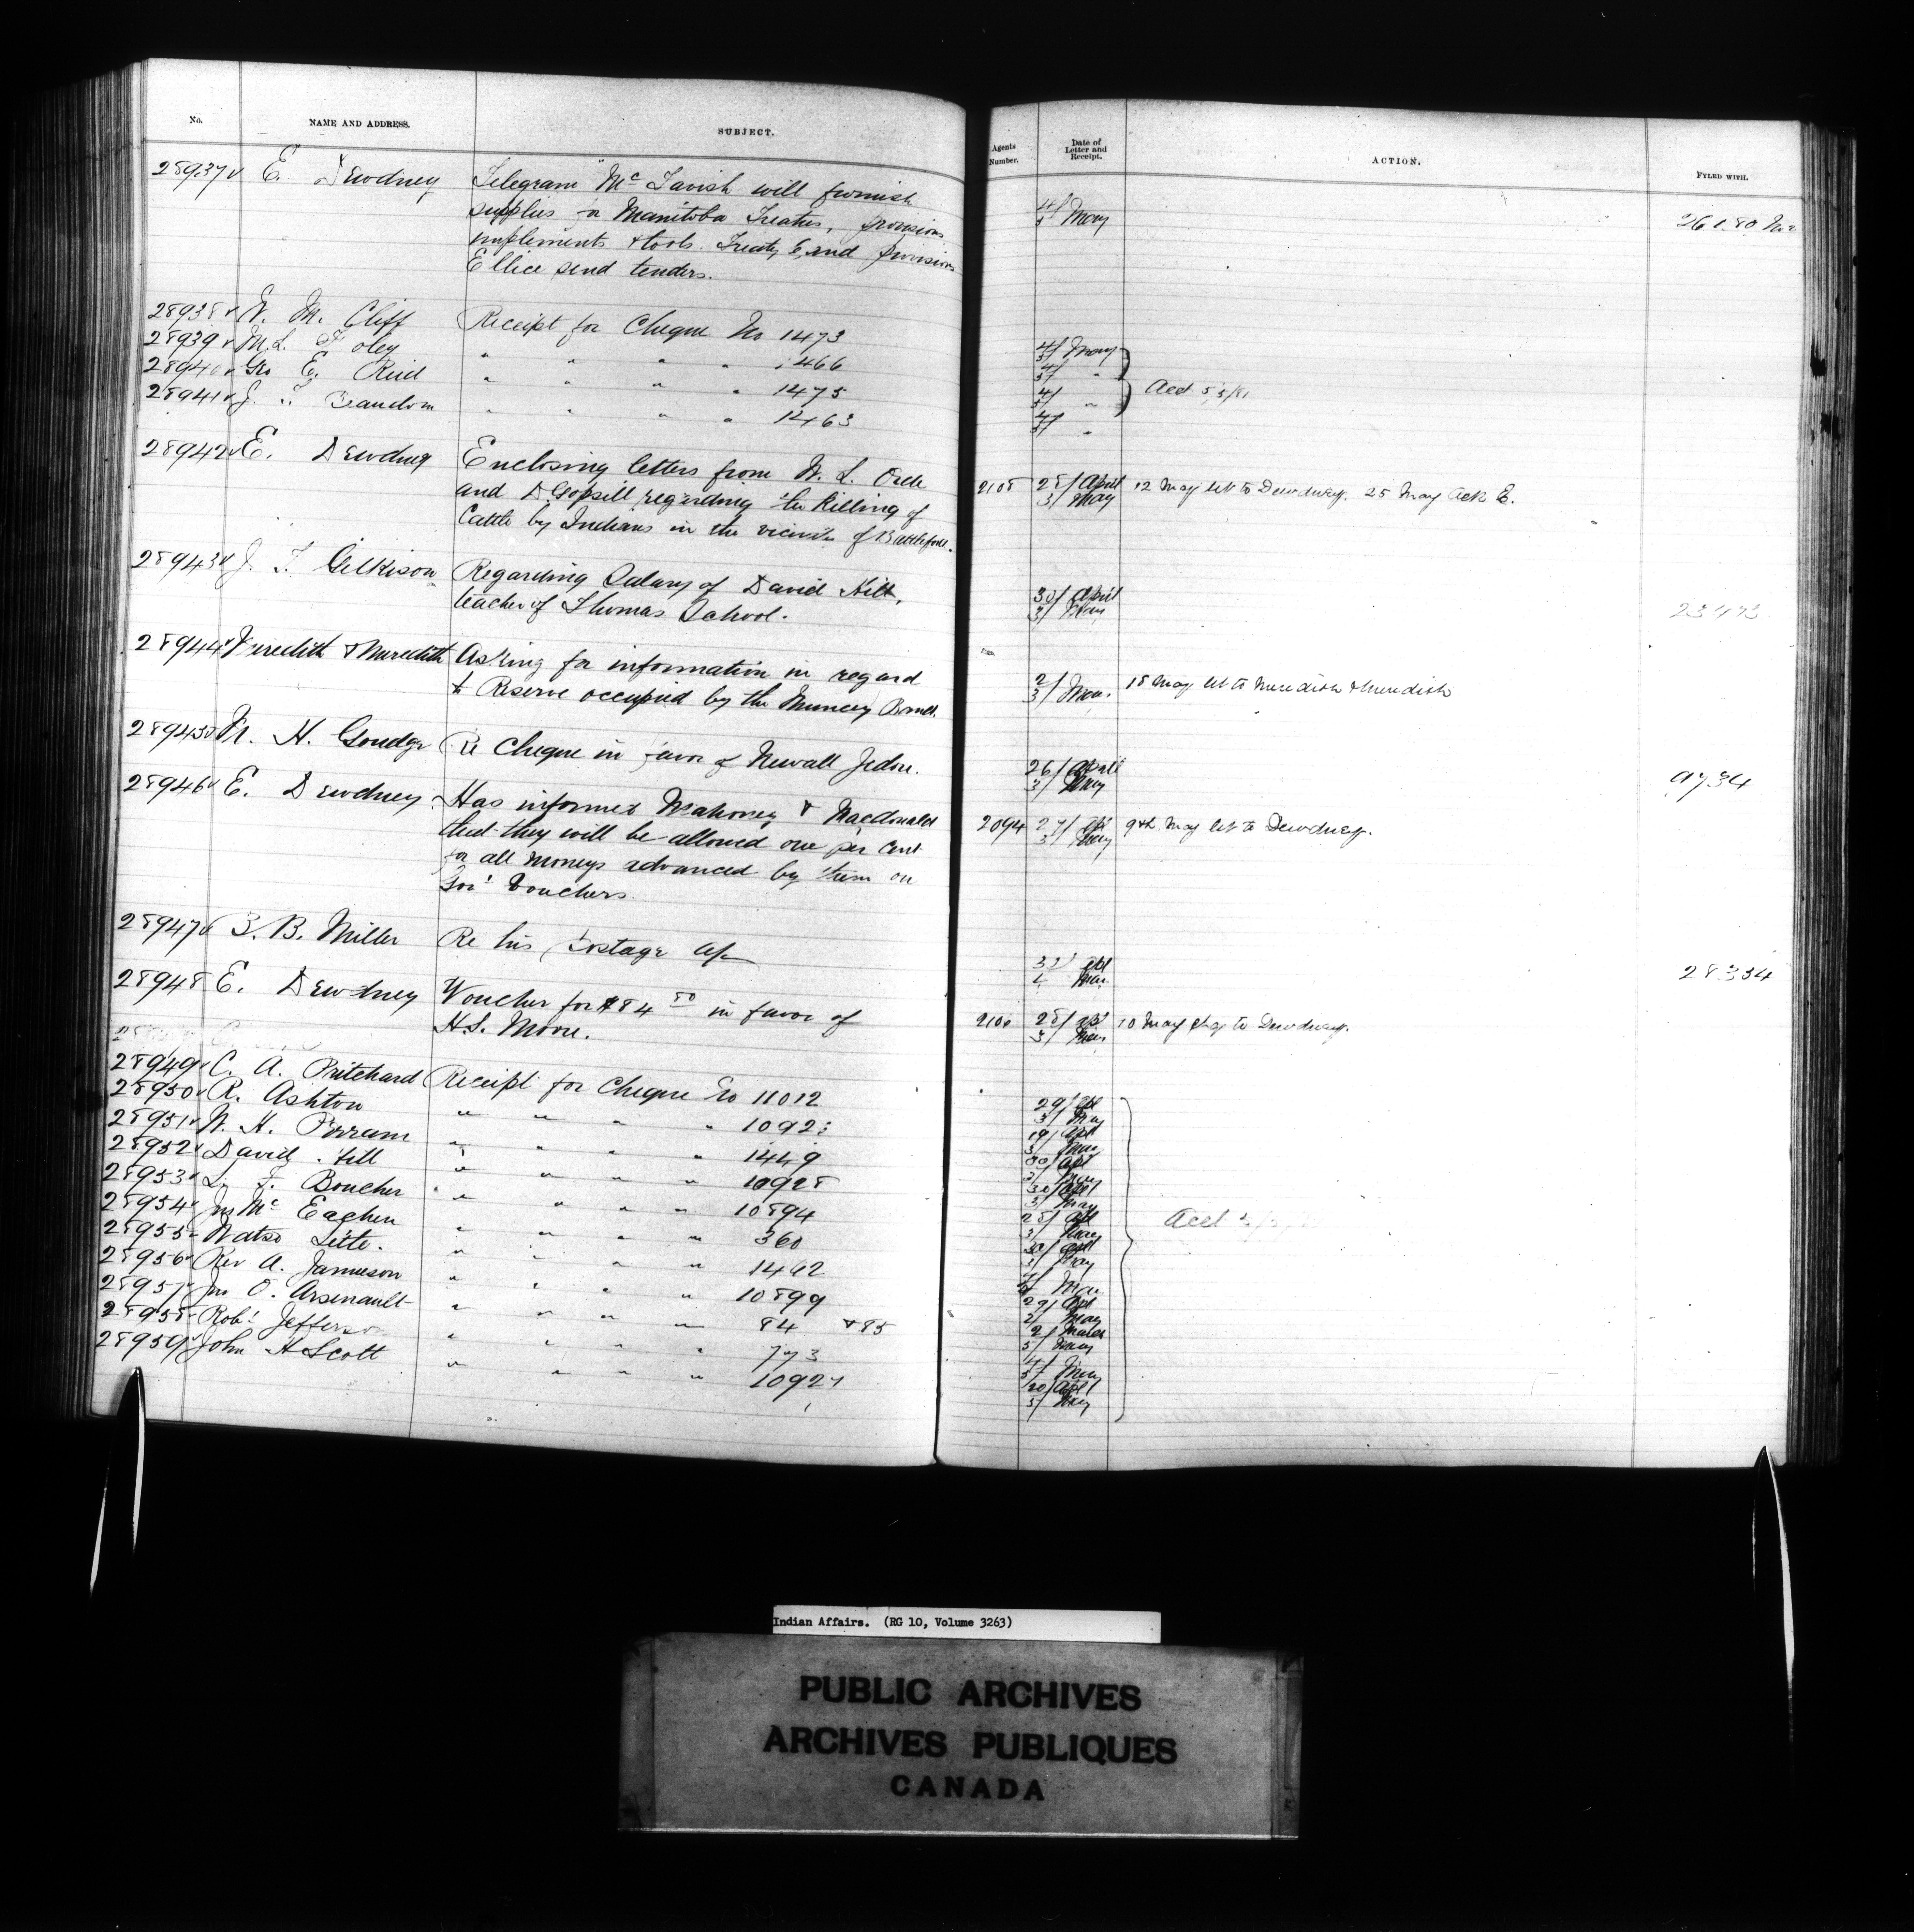 No. NAME AND ADDRESS. SUBJECT. Agents Number. Date of Letter and Receipt. ACTION. FYLED WITH.
28937 E. Dewdney Telegram "Mc Tavish will furnish
supplies for Manitoba Treaties, provisions 4/5 May
implements & tools. Treaty 6, and provisions
Ellice send tenders.
28938 W. M. Cliff Receipt for Cheque No 1473 4/5 May
28939 M.L. Foley " " " " 1466 4/5 "
28940 Geo E. Reid " " " " 1475 4/5 " Acct 5/5/81
28941 J. T. " " " " 1463 4/5 "
28942 E. Dewdney Enclosing letters from W. L. Orde 2108 28/ April 12 May let to Dewdney. 25 May Ack E.
and D. Gopsill regarding the Killing of 3/ May
Cattle by Indians in the vicinity of Battleford.
28943 J. T. Gilkison Regarding Salary of David Hill, 30/ April
teacher of Thomas School. 3/ May
28944 Meredith & Meredith Asking for information in regard 2/ 18 May let to Meredith & Meredith
to Reserve occupied by the Muncey Band. 3/ May
28945 H. Goudge Re Cheque in favor of Newall Jedore. 26/ April 9734
3/ May
28946 E. Dewdney Has informed Mahoney & Macdonald
that they will be allowed one per cent 2094 27/ Apl 9th May let to Dewdney.
for all moneys advanced by them on 3/ May
Gov't Vouchers.
28947 B. Miller Re his Postage a/c 28334
28948 E. Dewdney Voucher for $84 50 in favor of 28/ Apl 10 May to Dewdney.
H.S. Moore. 3/ May
28949 C. A. Pritchard Receipt for Cheque No 11012 29/ Apl
28950 R. Ashton " " " " 3/ May
28951 W. H. " " " " 1449
28952 David Hill " " " " 10928
28953 L. F. Boucher " " " " 10894
28954 Jno Mc Eachen " " " " 360
28955 Watso " " " " 1462
28956 Rev A. Jamieson " " " " 10899
28957 Jno O. Arsenault " " " " 84 & 85
28958 Robt Jefferson " " " " 773
28959 John H Scott " " " "
Indian Affairs. (RG 10, Volume 3263)
PUBLIC ARCHIVES
ARCHIVES PUBLIQUES
CANADA